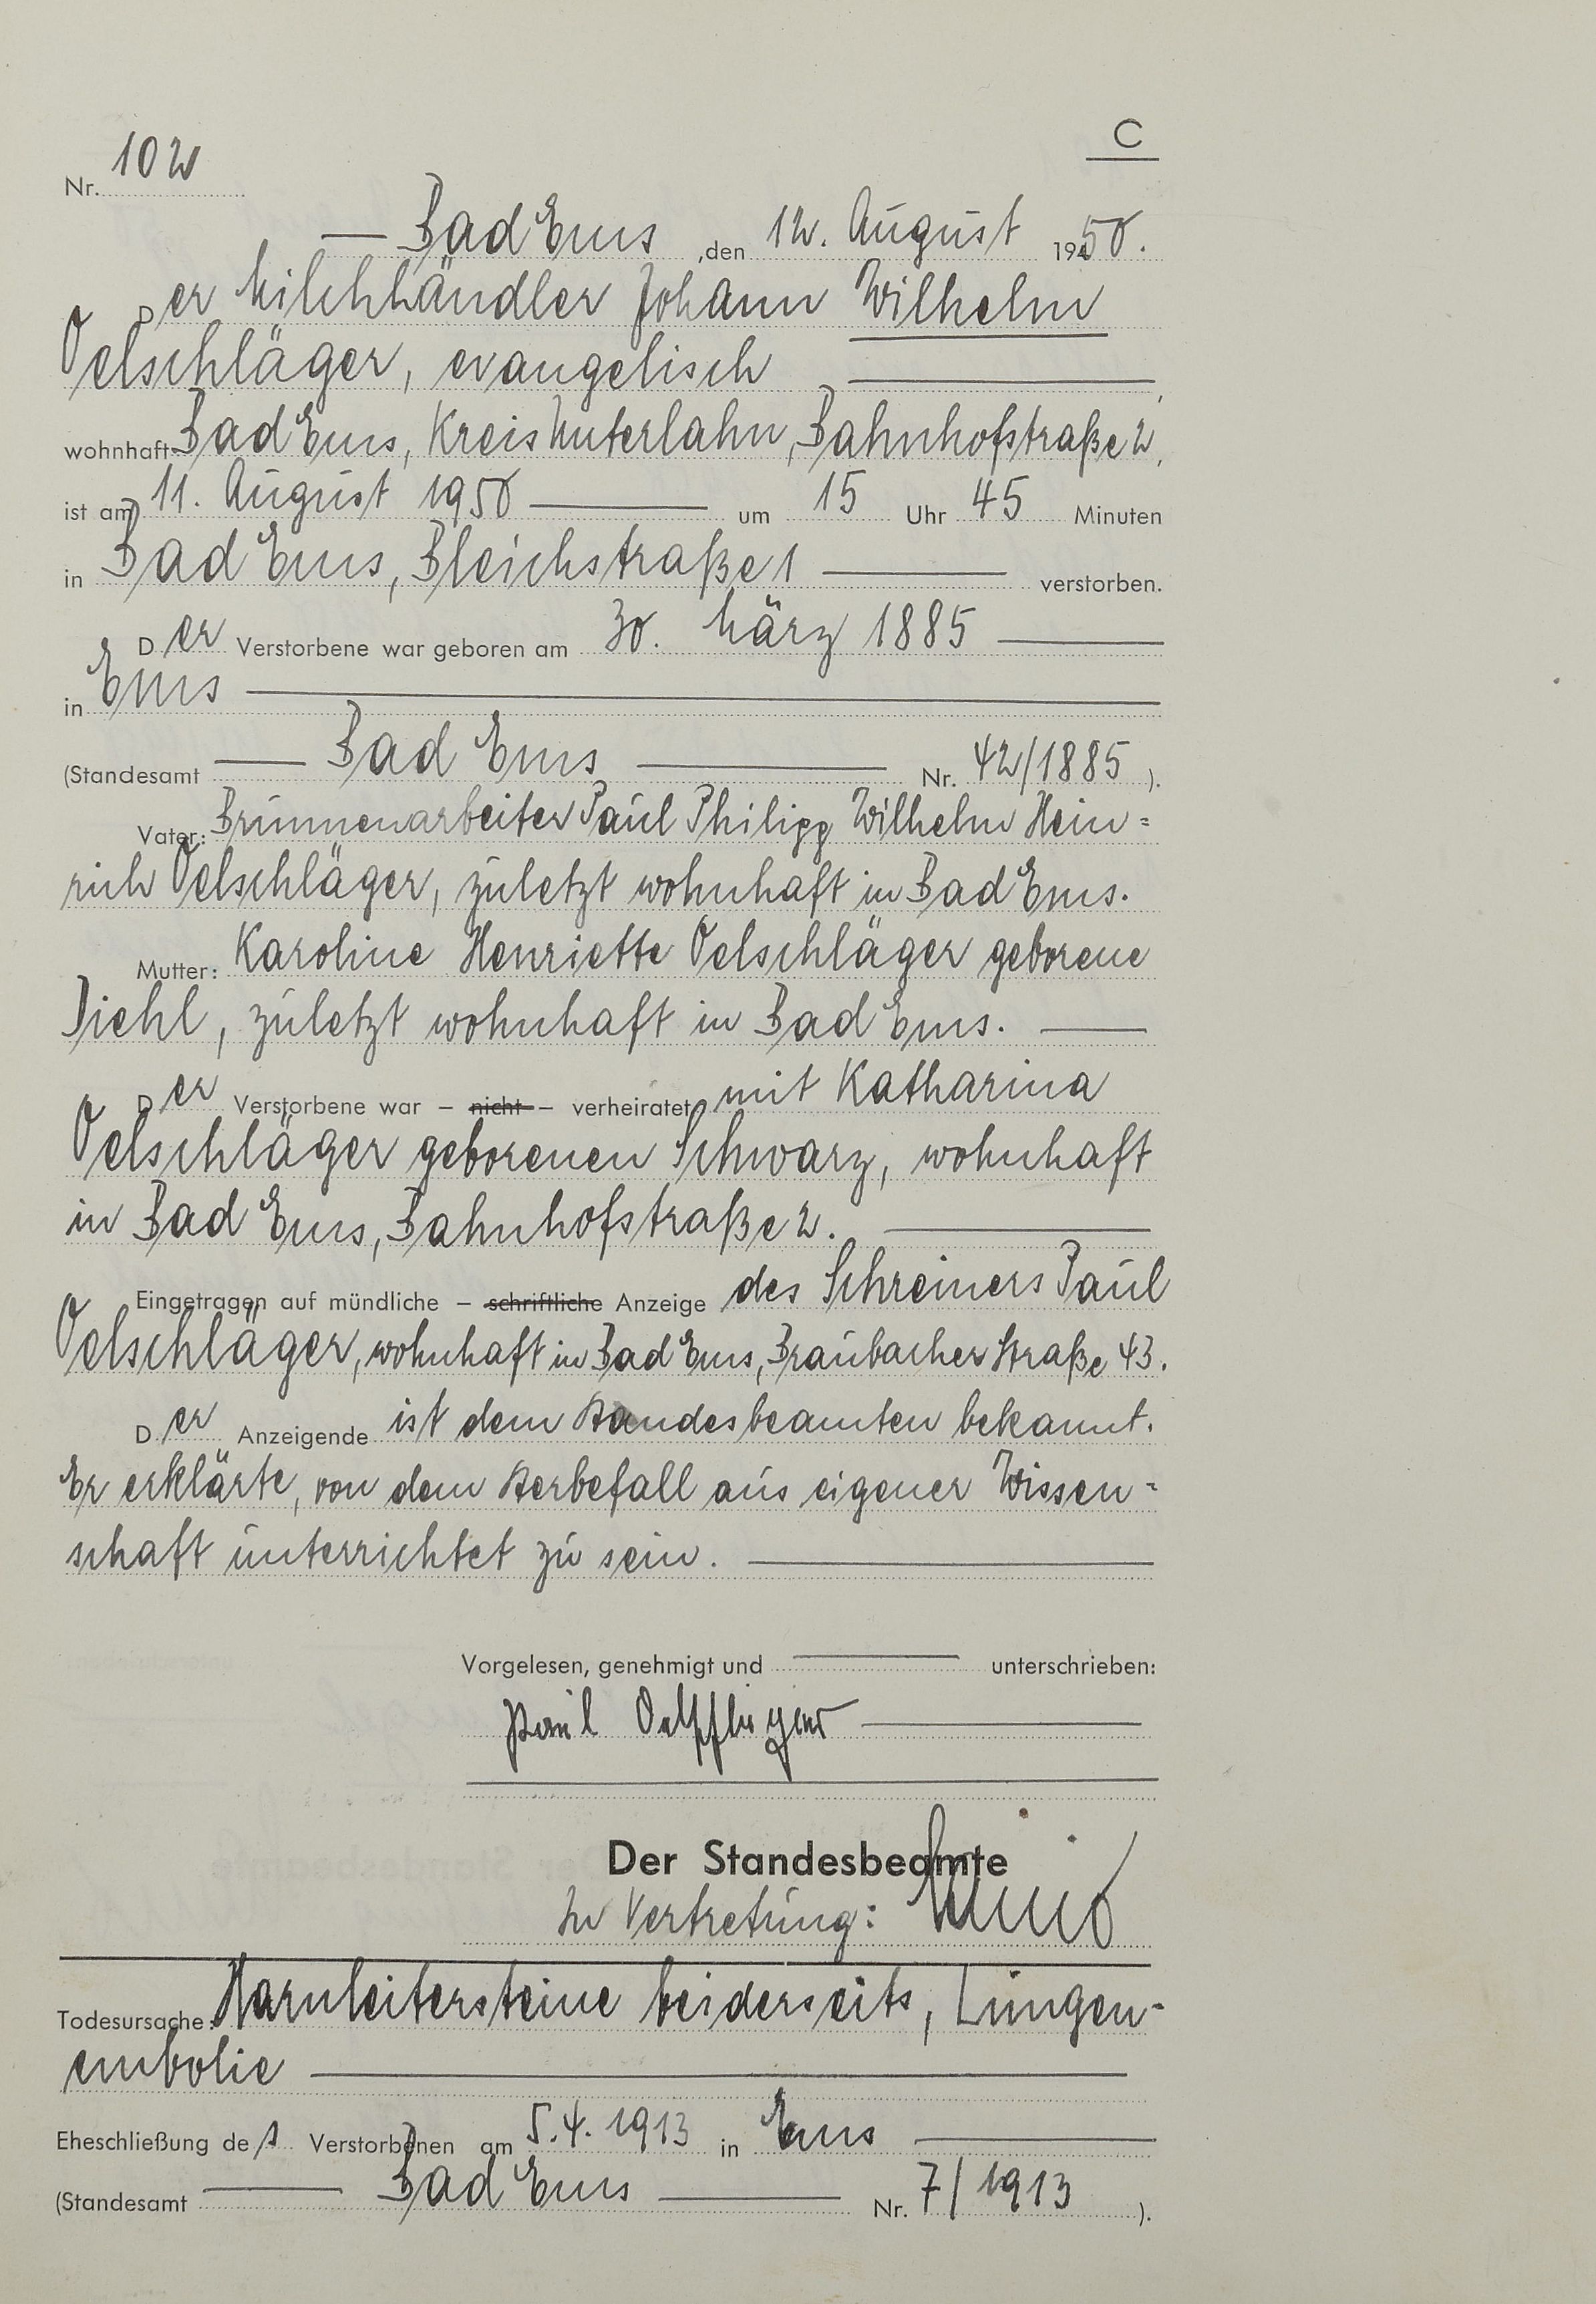 C
Nr. 102
Bad Ems, den 12. August 1950.
Der Milchhändler Johann Wilhelm
Oelschläger, evangelisch
wohnhaft Bad Ems, Kreis Unterlahn, Bahnhofstraße 2,
ist am 11. August 1950 um 15 Uhr 45 Minuten
in Bad Ems, Bleichstraße 1 verstorben.
Der Verstorbene war geboren am 30. März 1885
in Ems
(Standesamt Bad Ems Nr. 42/1885).
Vater: Brunnenarbeiter Paul Philipp Wilhelm Hein=
rich Oelschläger, zuletzt wohnhaft in Bad Ems.
Mutter: Karoline Henriette Oelschläger geborene
Diehl, zuletzt wohnhaft in Bad Ems.
Der Verstorbene war – nicht – verheiratet mit Katharina
Oelschläger geborenen Schwarz, wohnhaft
in Bad Ems, Bahnhofstraße 2.
Eingetragen auf mündliche – schriftliche Anzeige des Schreiners Paul
Oelschläger, wohnhaft in Bad Ems, Braubacher Straße 43.
Der Anzeigende ist dem Standesbeamten bekannt.
Er erklärte, von dem Sterbefall aus eigener Wissen=
schaft unterrichtet zu sein.
Vorgelesen, genehmigt und unterschrieben:
Paul Oelschläger
Der Standesbeamte
In Vertretung:
Todesursache: Harnleitersteine beiderseits, Lungen-
embolie
Eheschließung des Verstorbenen am 5.4.1913 in Ems
(Standesamt Bad Ems Nr. 7/1913).